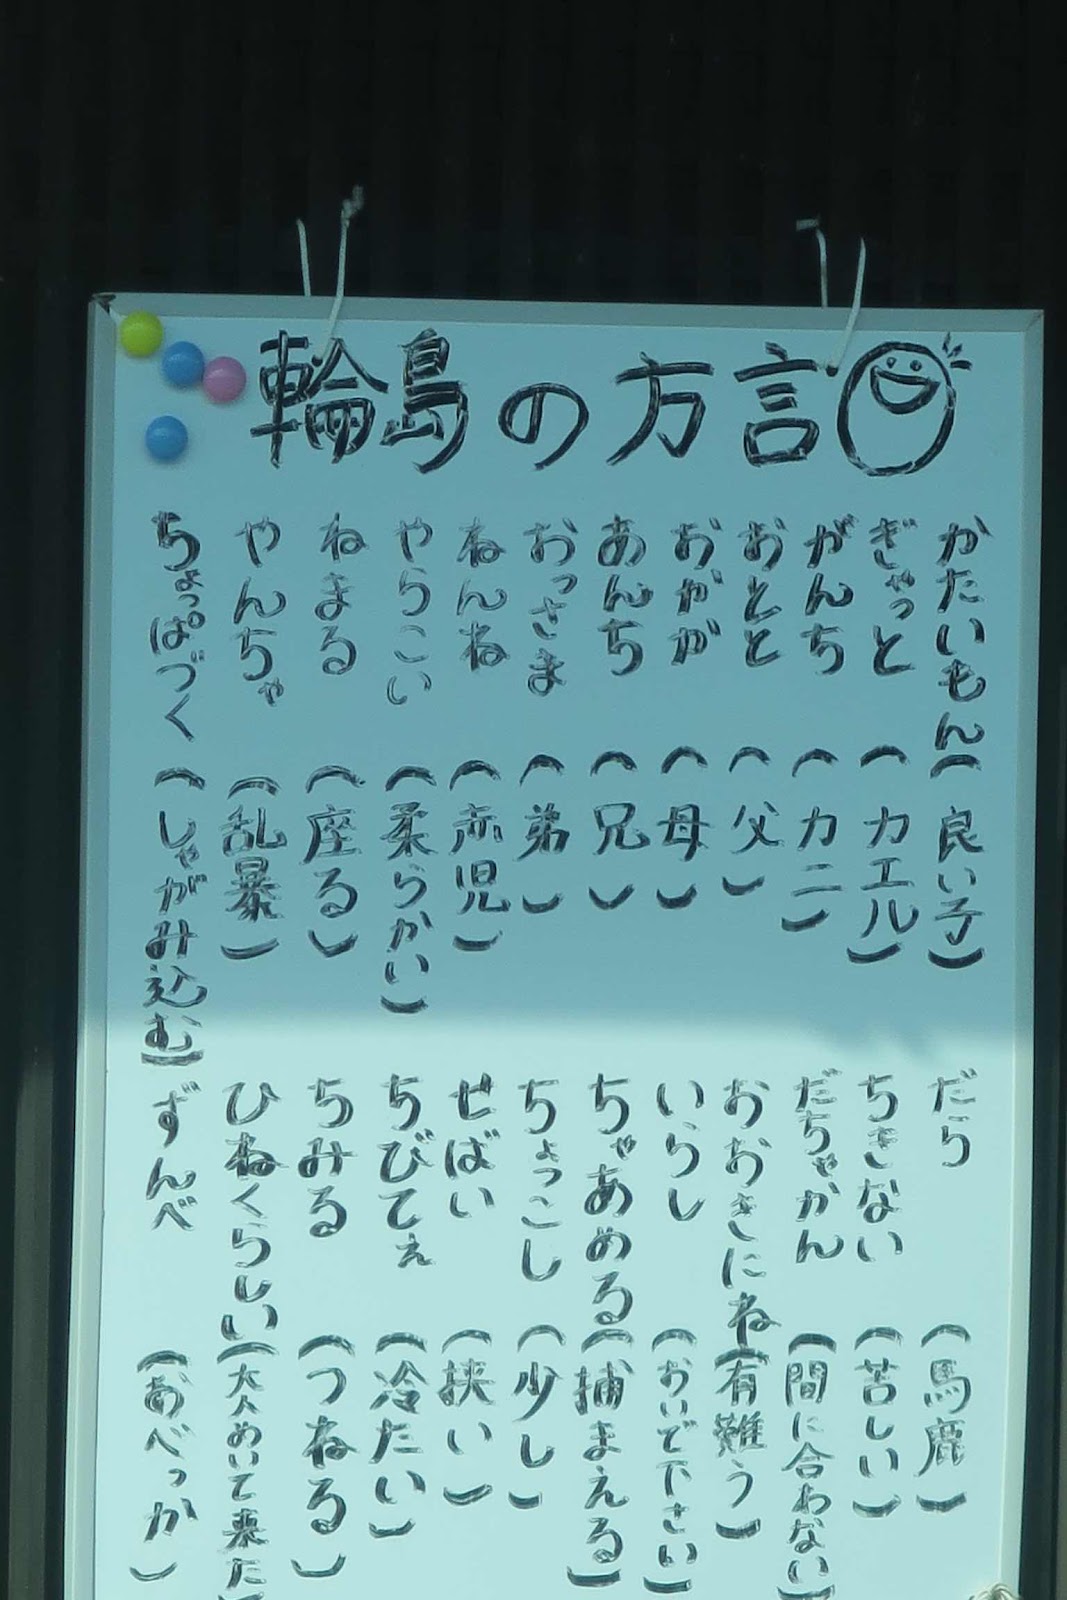 輪島の方言
かたいもん（良い子）
ぎゃっと（カエル）
がんち（カニ）
おとと（父）
おかか（母）
あんち（兄）
おっさま（弟）
ねんね（赤児）
やらこい（柔らかい）
ねまる（座る）
やんちゃ（乱暴）
ちょっぱづく（しゃがみ込む）
だら（馬鹿）
ちきない（苦しい）
だちゃかん（間に合わない）
おおきにね（有難う）
いらし（おいで下さい）
ちゃあめる（捕まえる）
ちょっこし（少し）
せばい（狭い）
ちびてぇ（冷たい）
ちみる（つねる）
ひねくらしい（大人めいて来た）
ずんべ（あべっか）